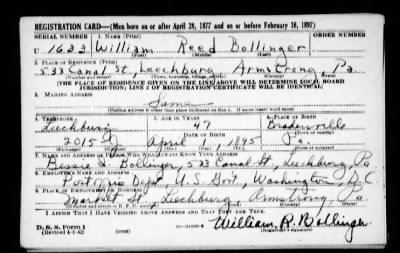 REGISTRATION CARD—(Men born on or after April 28, 1877 and on or before February 16, 1897)
SERIAL NUMBER 1. NAME (Print) ORDER NUMBER
U 1623 William Reed Bollinger
(First) (Middle) (Last)
2. PLACE OF RESIDENCE (Print)
533 Canal St., Leechburg Armstrong, Pa.
(THE PLACE OF RESIDENCE GIVEN ON THE LINE ABOVE WILL DETERMINE LOCAL BOARD
JURISDICTION; LINE 2 OF REGISTRATION CERTIFICATE WILL BE IDENTICAL)
3. MAILING ADDRESS
Same
(Mailing address if other than place indicated on line 2. If same insert word same)
4. TELEPHONE 5. AGE IN YEARS 6. PLACE OF BIRTH
Leechburg 47
DATE OF BIRTH
2015 April 1895 Pa.
7. NAME AND ADDRESS OF PERSON WHO WILL ALWAYS KNOW YOUR ADDRESS
Bessie Bollinger, 533 Canal St., Leechburg, Pa
8. EMPLOYER'S NAME AND ADDRESS
Post Office Dept., U.S. Govt., Washington, D.C.
9. PLACE OF EMPLOYMENT OR BUSINESS
Market St., Leechburg Armstrong, Pa
I AFFIRM THAT I HAVE VERIFIED ABOVE ANSWERS AND THAT THEY ARE TRUE.
D. S. S. Form 1
(Revised 4-1-42) (over)
William R. Bollinger